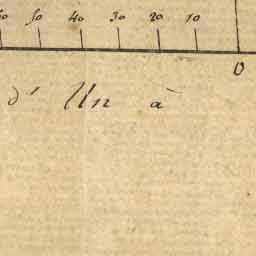 50 40 30 20 10
0
d' Un à